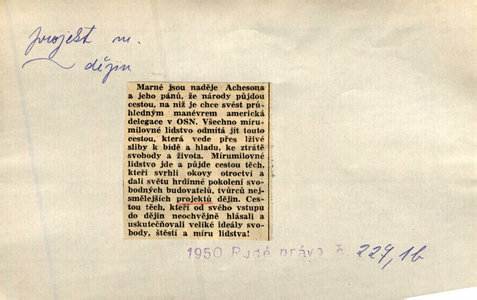 projekt m.
dějin
Marné jsou naděje Achesona
a jeho pánů, že národy půjdou
cestou, na niž je chce svést prů-
hledným manévrem americká
delegace v OSN. Všechno míru-
milovné lidstvo odmítá jít touto
cestou, která vede přes lživé
sliby k bídě a hladu, ke ztrátě
svobody a života. Mírumilovné
lidstvo jde a půjde cestou těch,
kteří svrhli okovy otroctví a
dali světu hrdinné pokolení svo-
bodných budovatelů, tvůrců nej-
smělejších projektů dějin. Ces-
tou těch, kteří od svého vstupu
do dějin neochvějně hlásali a
uskutečňovali veliké ideály svo-
body, štěstí a míru lidstva!
1950 Rudé právo č. 229, 1b